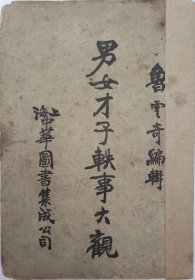 魯雲奇編輯
男女才子軼事大觀
上海中華圖書集成公司